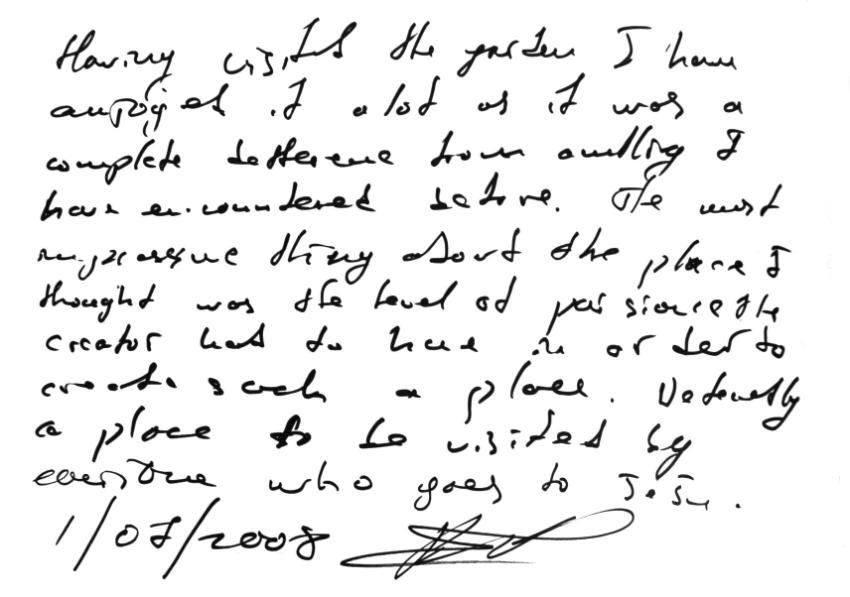 Having visited the garden I have
enjoyed it a lot as it was a
complete difference from anything I
have encountered before. The most
impressive thing about the place I
thought was the level of patience the
creator had to have in order to
create such a place. Definetly
a place to be visited by
everyone who goes to
1/07/2008